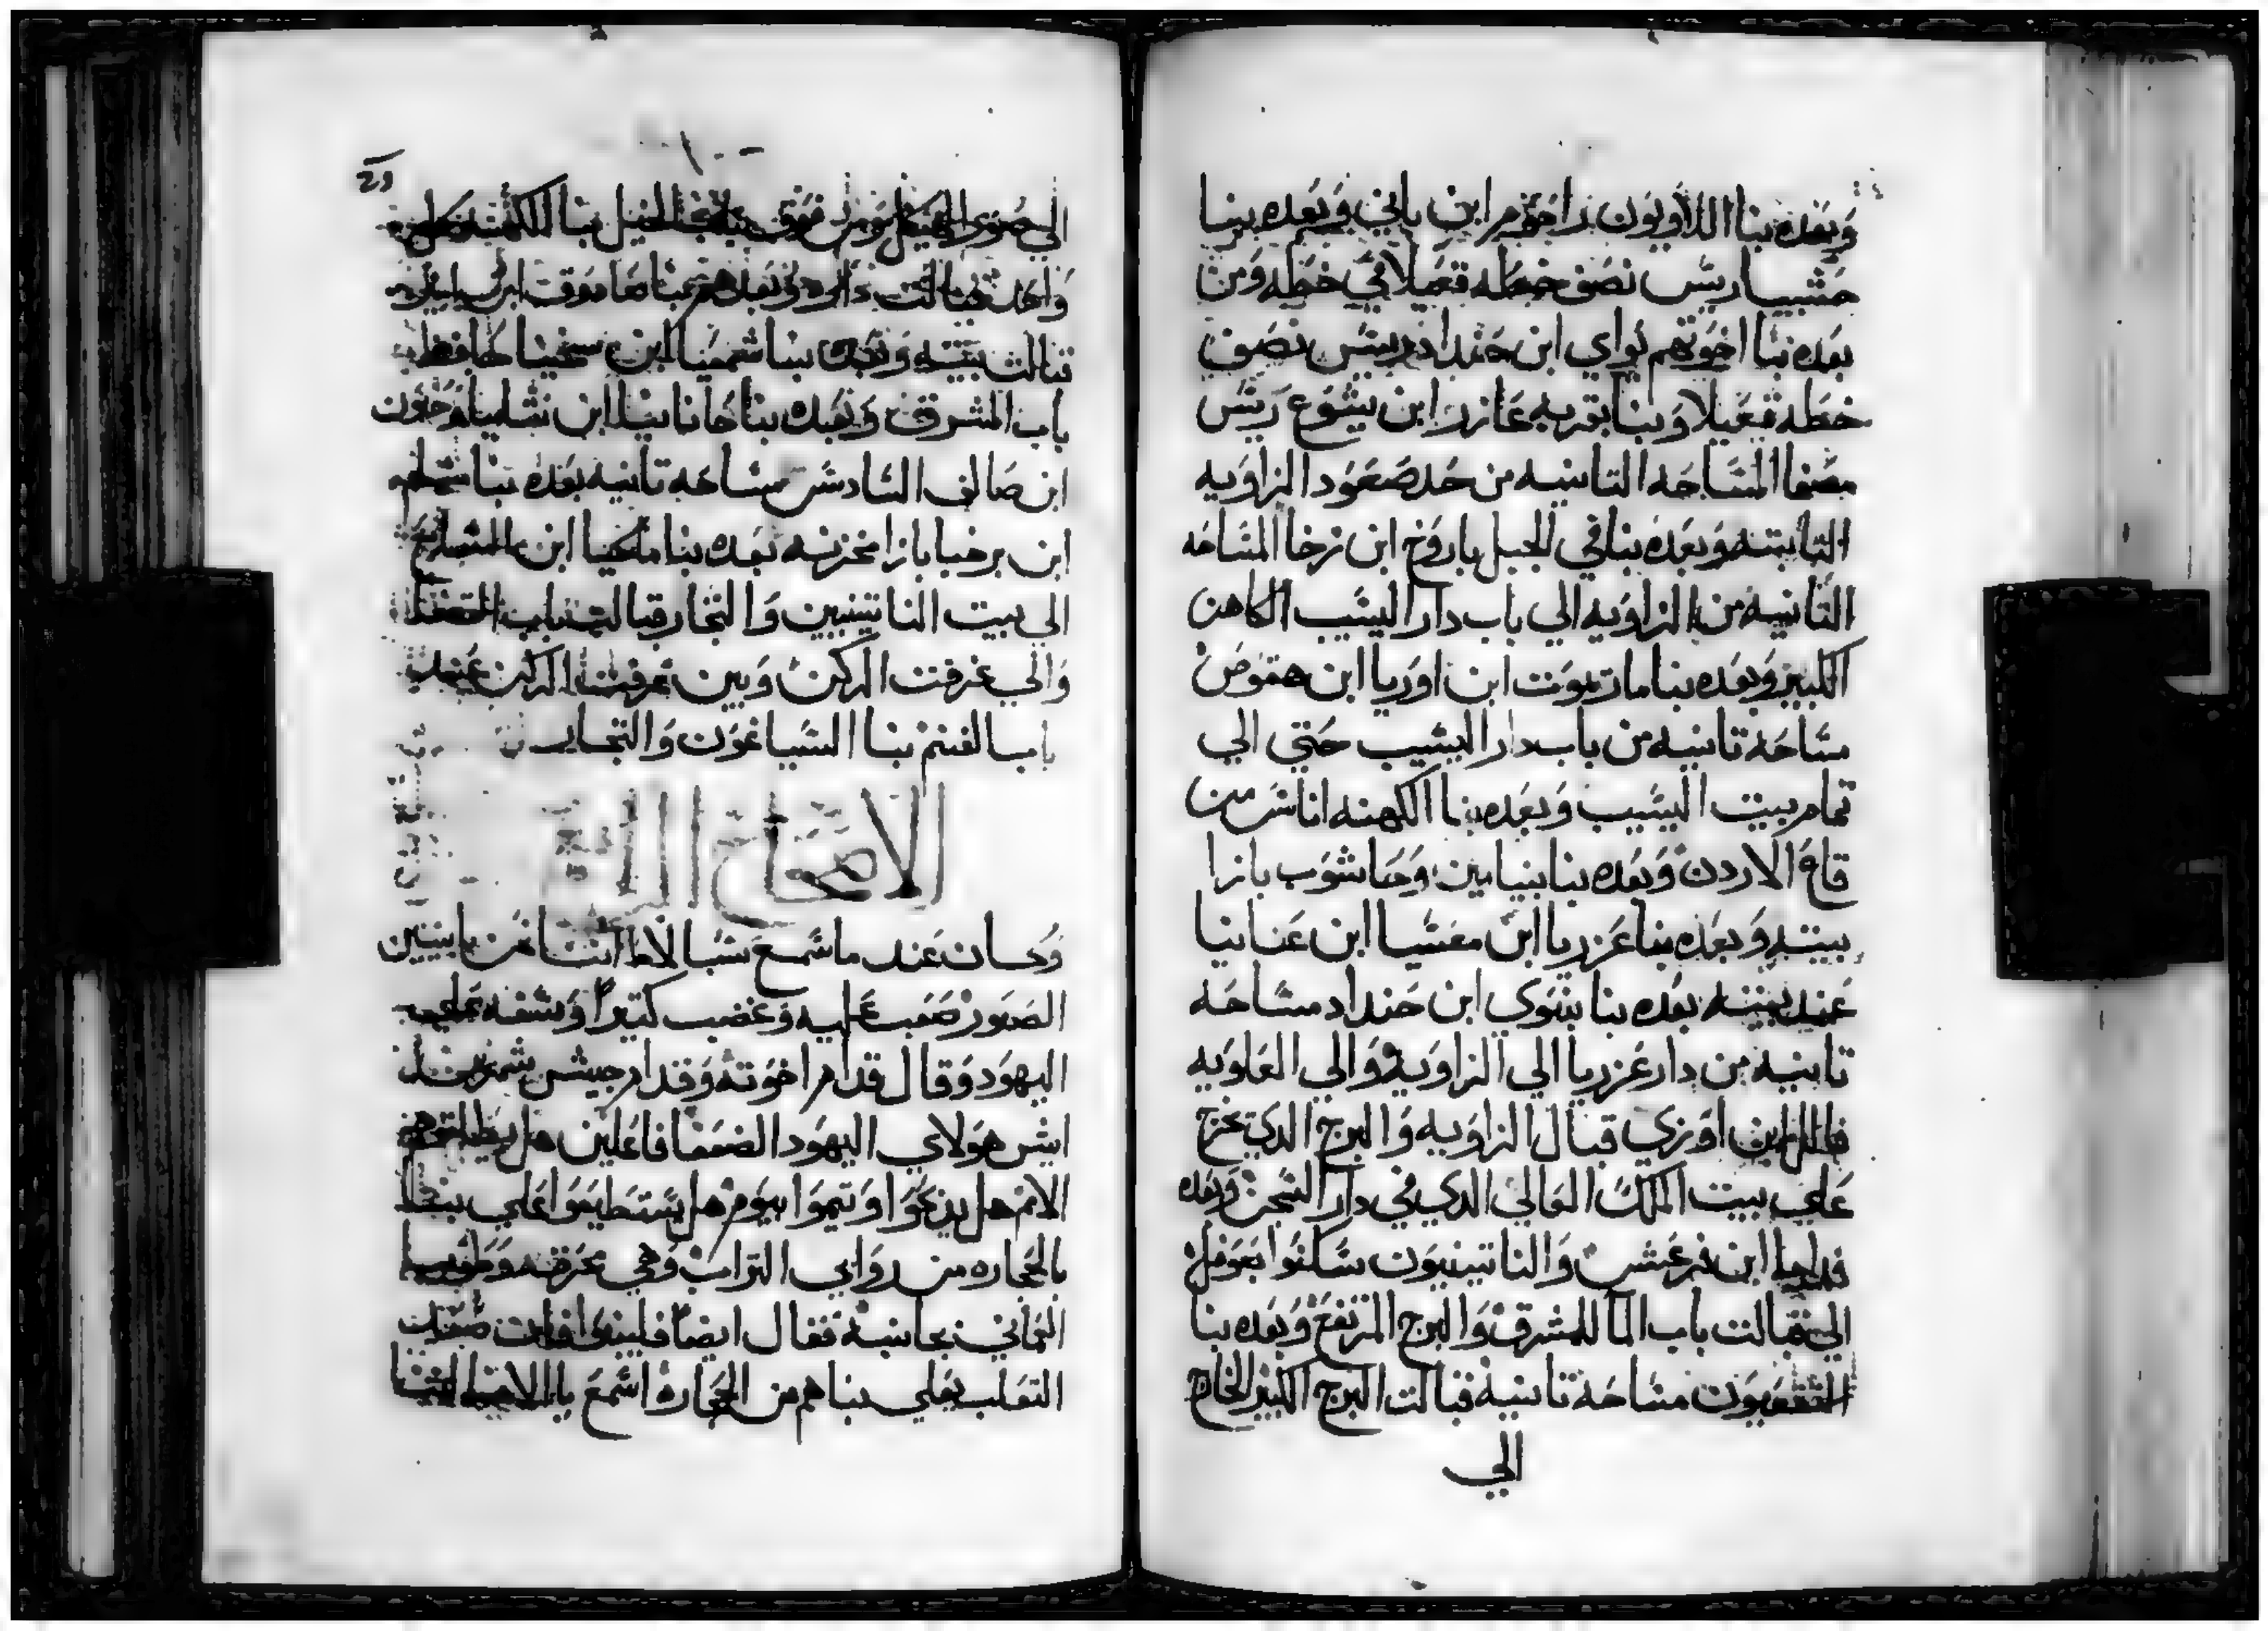 وبعده بنا اللاويون راحوم ابن باني وبعده بنا
حشبيا ريس نصف خطه قعيلا في خطه ومن
بعده بنا اخوتهم بواي ابن حنداد ريس نصف
خطه قعيلا وبنا بقربه عازر ابن يشوع ريس
مصفا المساحه التانيه من حد صعود الزاويه
التابته وبعده بنا في الجبل باروخ ابن زخا المساحه
التانيه من الزاويه الي باب دار اليشيب الكاهن
الكبير وبعده بنا مارتموت ابن اوريا ابن هقوص
مساحه تانيه من باب دار اليشيب حتي الي
تمام بيت اليشيب وبعده بنا الكهنه اناس من
قاع الاردن وبعده بنا بنيامين وحاشوب بازا
بيته وبعده بنا عزريا ابن معسيا ابن عنانيا
عند بيته بعده بنا بنوي ابن حنداد مساحه
تانيه من دار عزريا الي الزاويه والي العلويه
فالال ابن اوزي قبال الزاويه والبرج الدي يخرج
علي بيت الملك العالي الدي في دار السجن وبعده
فدايا ابن فرعش والناتينيون سكنوا بعوفل
الي قبالت باب الما للمشرق والبرج المرتفع وبعده بنا
التقعيون مساحه تانيه قبالت البرج الكبير الخارج
الي
الي صور الهيكل ومن فوق باب الخيل بنا الكهنه كل
واحد قبالت داره بعدهم بنا صادوق ابن
قبالت بيته وبعده بنا شمعيا ابن سخنيا حافظ
باب المشرق وبعده بنا حانانيا ابن شلميا وحنون
ابن صالف السادس مساحه تانيه بعده بنا مشلم
ابن برخيا بازا مخزنه بعده بنا ملخيا ابن الصايغ
الي بيت الناتينيين والتجار قبالت باب
والي غرفت الركن وبين غرفت الركن عند
باب الغنم بنا السياغون والتجار
الاصحاح الرابع
وكان عند ما سمع سنبالاط اننا نحن بانيين
الصور صعب عليه وغضب كتيرا وسفه علي
اليهود وقال قدام اخوته وقدام جيش شمرين
ايش هولاي اليهود الضعفا فاعلين هل
الامم هل يذبحوا ويتموا بيوم هل يستطيعوا علي بنا
بالحجاره من روابي التراب وهي محرقه وطوبيا
العماني بجانبه فقال ايضا فليبنوا فان صعد
التعلب يعلي بناهم من الحجاره اسمع يا الاهنا